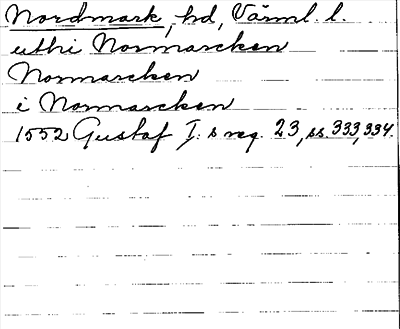 Nordmark, hd, Värml. l.
uthi Normarcken
Normarcken
i Normarcken
1552 Gustaf I:s reg. 23, ss. 333, 334.